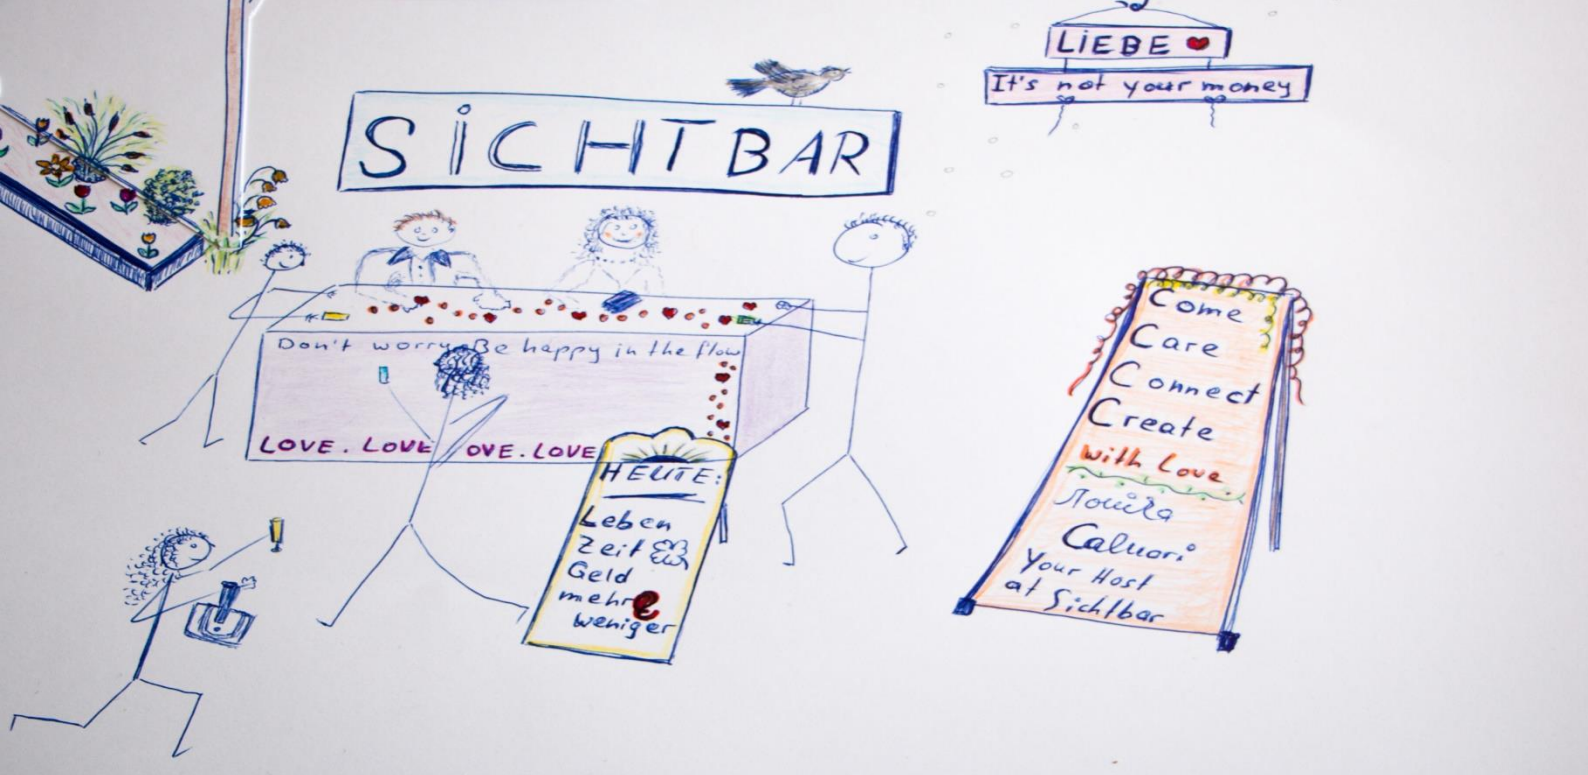 SiCHTBAR
LiEBE
It's not your money
Don't worry Be happy in the flow
LOVE. LOVE OVE. LOVE
HEUTE:
Leben
Zeit
Geld
mehr
weniger
Come
Care
Connect
Create
with Love
Your Host
at Sichtbar